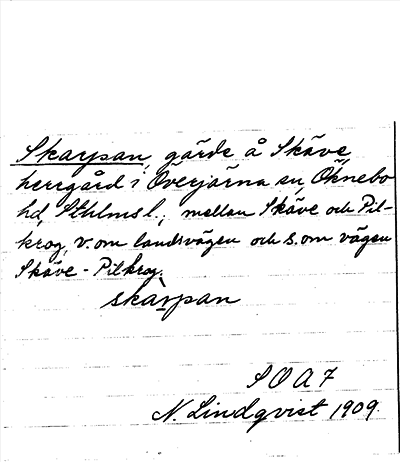 Skarpan, gärde å Skäve,
herrgård i Överjärna sn, Öknebo
hd, Sthlms l., mellan Skäve och Pil-
krog, v. om landsvägen och s. om vägen
Skäve - Pilkrog.
skarpan
S O A 7
N. Lindqvist 1909.